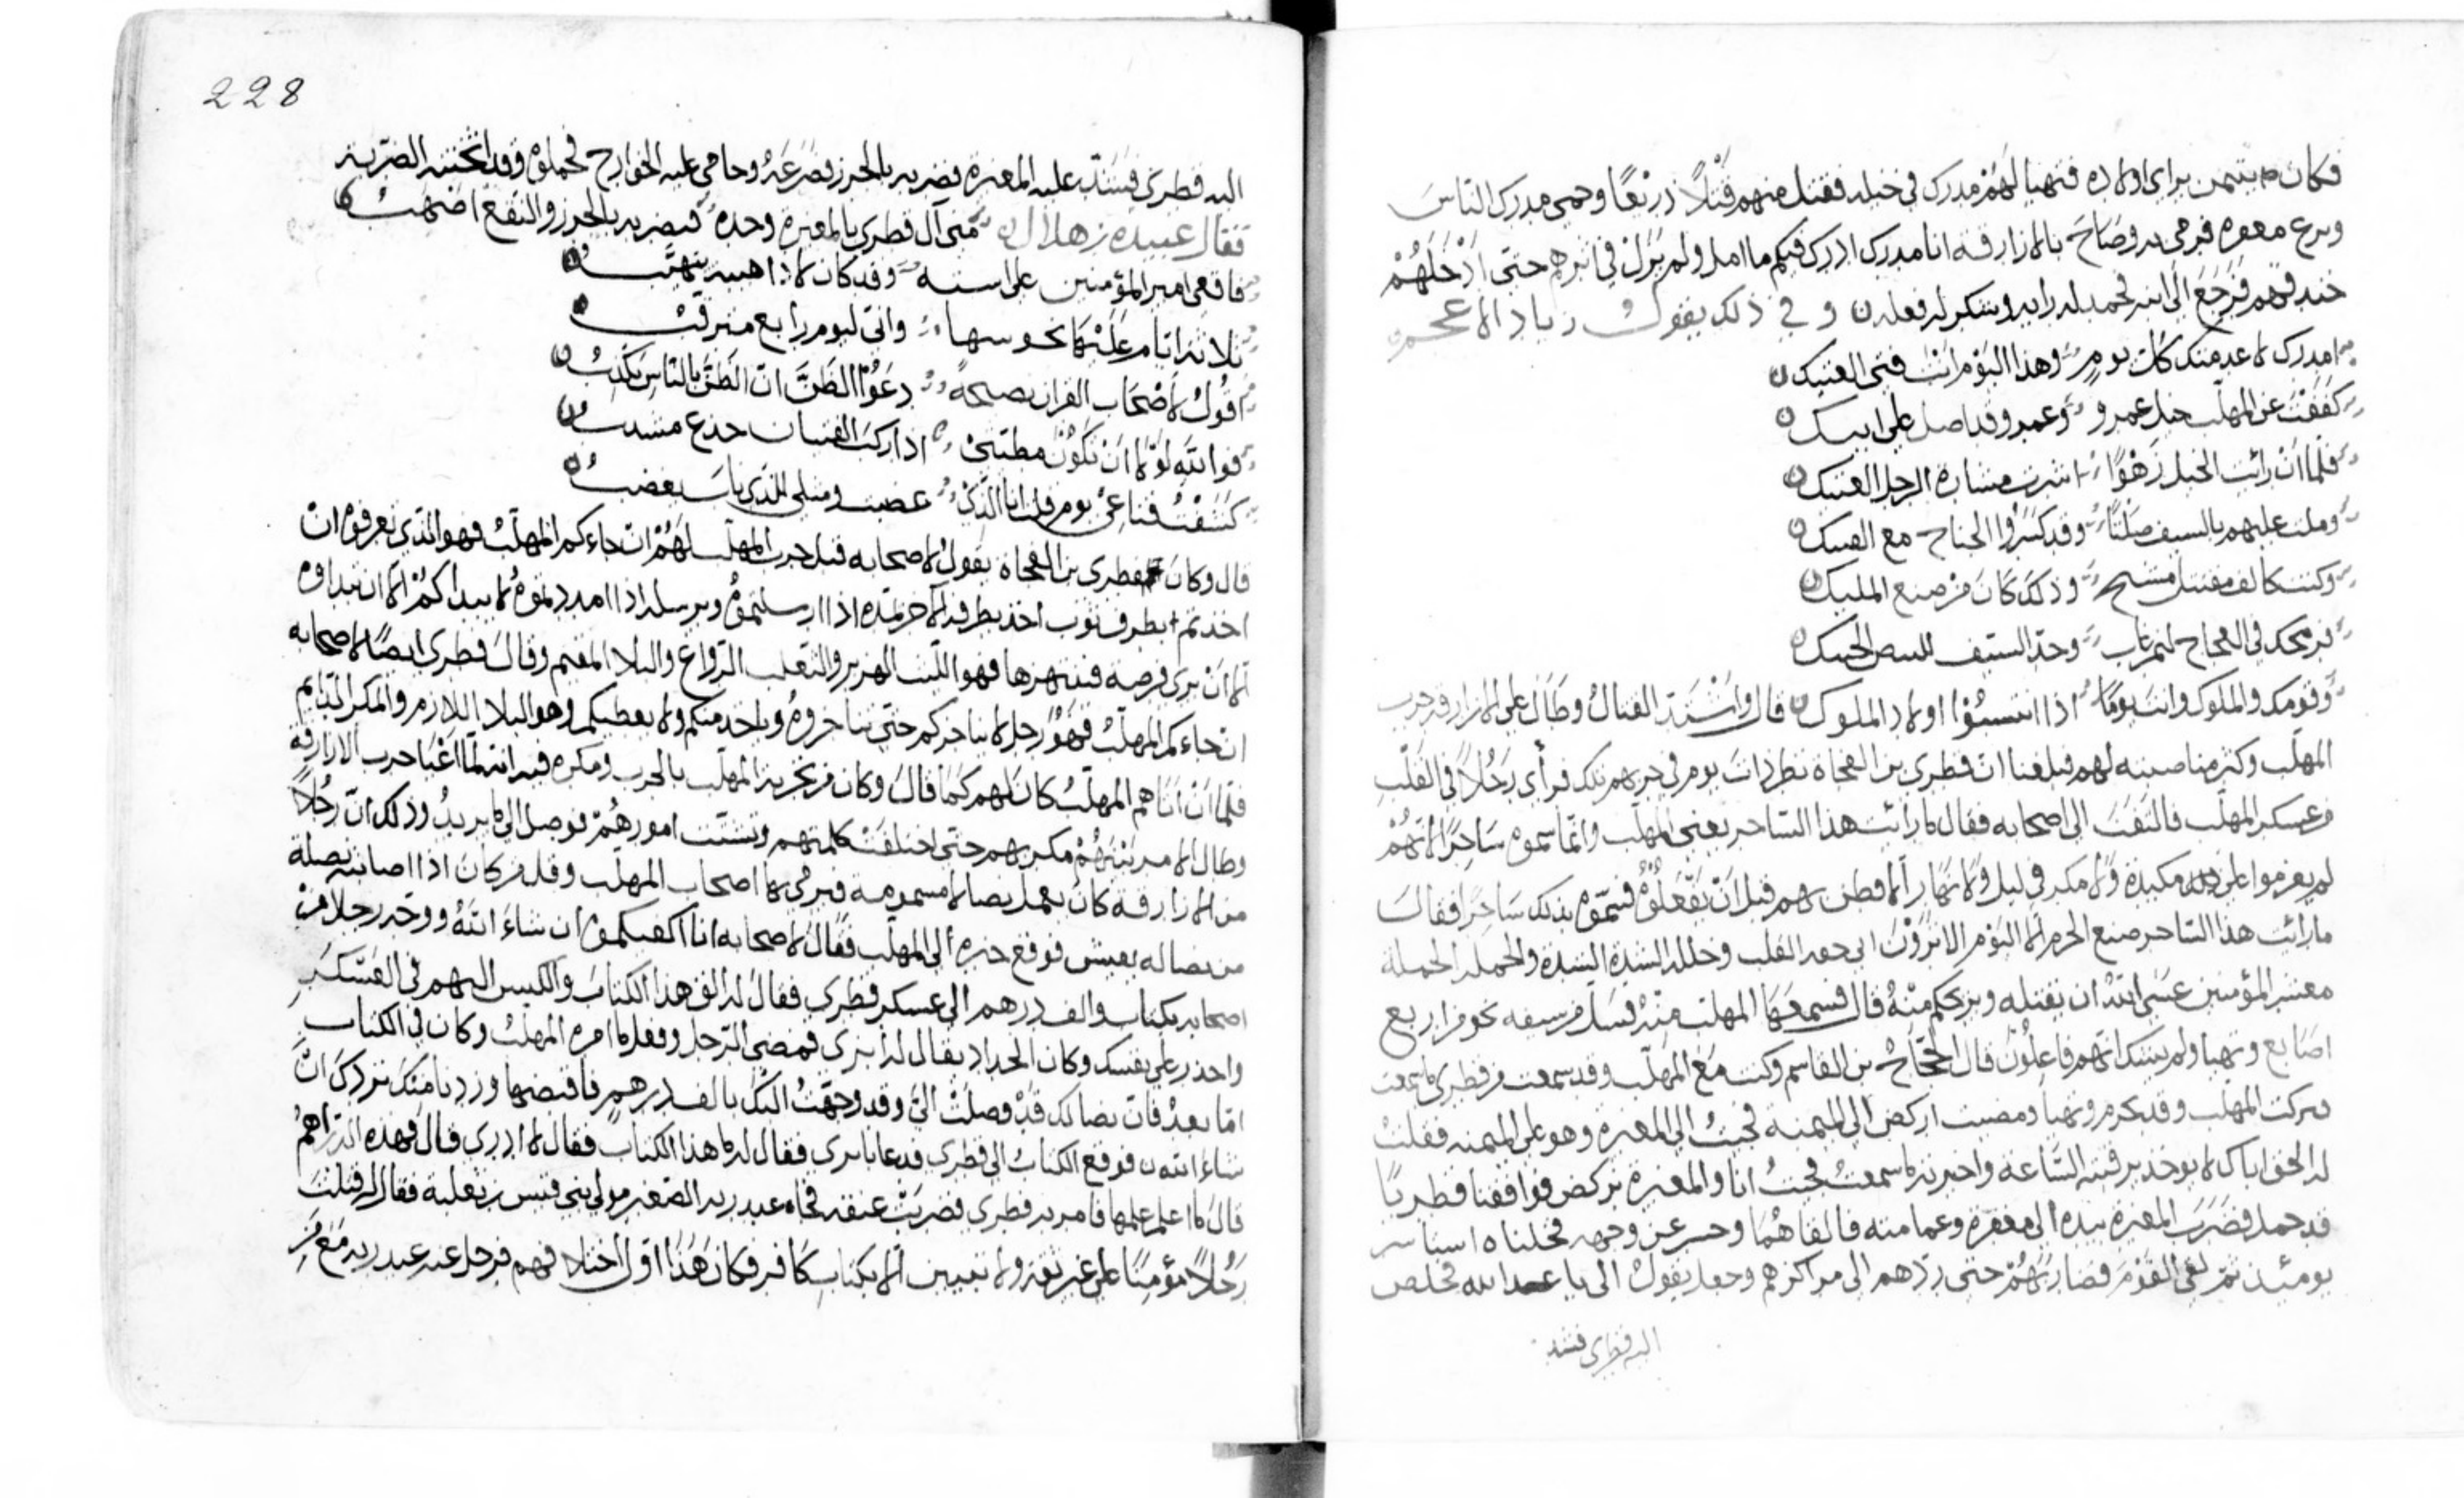 فكان يتيمن براي اولاده فتهيا لهم مدرك في خيله فقتل منهم قتلًا ذريعًا وحمى مدرك الناس
ونزع مغفره فرمى به وصاح بالازارقة انا مدرك ادرك فيكم ما امل ولم يزل في اثرهم حتى ادخلهم
خندقهم فرجع الى ابيه فحمد له رايه وشكر له فعله ن و في ذلك يقول زياد الاعجم
امدرك لا عدمتك كل يوم وهذا اليوم انت فتى العتيك ن
كففت عن المهلب خيل عمرو وعمرو قد اصل على ابيك ن
فلما ان رائت الخيل زهوًا اشرت مشارة الرجل العتيك ن
وملت عليهم بالسيف صلتًا وقد كسروا الجناح مع العتيك ن
وكنت كالف مقتبل مشيح وذلك كان من صنع المليك ن
فرمحك في العجاج لهم باب وحد السيف للبيض الحبيك ن
وقومك والملوك وانت يومًا اذا انتسبوا اولاد الملوك ن قال واشتد القتال وطال على الازارقة حرب
المهلب وكثر مناصبته لهم فبلغنا ان قطري بن الفجاة نظر ذات يوم في حربهم تلك فرأى رجلًا في القلب
من عسكر المهلب فالتفت الى اصحابه فقال ما رائت هذا الساحر يعني المهلب وانما سموه ساحرًا لانهم
لم يعزموا على مكيدة ولا مكر في ليل ولا نهار الا فطن بهم قبل ان يفعلوه فسموه بذلك ساحرًا فقال
ما رائت هذا الساحر صنع الحزم الا اليوم الا ترون الى جعد القلب وخلله الشدة الشدة والحملة الحملة
معشر المؤمنين عسى الله ان يقتله ويريحكم منه قال فسمعها المهلب منه فسل من سيفه نحو من اربع
اصابع وتهيا ولم يشك انهم فاعلون قال الحجاج بن القاسم وكنت مع المهلب وقد سمعت من قطري ما سمعت
فتركت المهلب وقد تحزم وتهيا ومضيت اركض الى الميمنة فجئت الى المغيرة وهو على الميمنة فقلت
له الحق اباك لا يوخذ برقبته الساعة واخبرته ما سمعت فجئت انا والمغيرة نركض فوافقنا قطريًا
قد حمل فضرب المغيرة بيده الى مغفره وعمامته فالقاهما وحسر عن وجهه فخلناه
يومئذ ثم لقي القوم فضاربهم حتى ردهم الى مراكزهم وجعل يقول الي يا عبد الله فخلص
اليه قطري فشد
228
اليه قطري فيشد عليه المغيرة فضربه بالجرز فصرعه وحامى عليه الخوارج فحملوه وقد اثخنته الضربة
فقال عبيدة بن هلال ن متى ال قطري بالمغيرة وحده فيضربه بالجرز والنقع اصهب ن
فاقعى امير المؤمنين على استه وقد كان لا ذا هيبة يتهيب ن
ثلاثة ايام علتها نحوسها واني ليوم رابع مترقب ن
اقول لاصحاب القران نصيحة دعوا الظن ان الظن بالناس يكذب ن
فوالله لولا ان تكون مطيتي اذا ركب الفتيان جذع مشذب ن
كشفت قناعي يوم قلت انا الذي غضبت ومثلي للذي ناب يغضب ن
قال وكان قطري بن الفجاة يقول لاصحابه قبل حرب المهلب لهم ان جاءكم المهلب فهو الذي تعرفوه ان
اخذتم بطرف ثوب اخذ بطرفه الاخر يمده اذا ارسلتموه ويرسله اذا مددتموه لا يبداكم الا ان تبداوه
الا ان يرى فرصة فينتهزها فهو الليث الهزبر والثعلب الرواغ والبلا المقيم وقال قطري ايضًا لاصحابه
ان جاءكم المهلب فهو رجل لا يناجزكم حتى تناجزوه وياخذ منكم ولا يعطيكم وهو البلا اللازم والمكر الدايم
فلما ان اتاهم المهلب كان لهم كما قال وكان من تجربة المهلب بالحرب ومكره فيه انه لما اعيا حرب الازارقة
وطال الامر بينهم مكر بهم حتى اختلفت كلمتهم وتشتت امورهم فوصل الى ما يريد وذلك ان رجلًا
من الازارقة كان يعمل نصالا مسمومة فيرمى بها اصحاب المهلب وقل من كان اذا اصابته نصلة
من نصاله يعيش فوقع خبره الى المهلب فقال لاصحابه انا اكفيكموه ان شاء الله ووجه رجلا من
اصحابه بكتاب والف درهم الى عسكر قطري فقال له الق هذا الكتاب والكيس اليهم في العسكر
واحذر على نفسك وكان الحداد يقال له ابزى فمضى الرجل وفعل ما امره المهلب وكان في الكتاب
اما بعد فان نصالك قد وصلت الي وقد وجهت اليك بالف درهم فاقبضها وزدنا منك نزدك ان
شاء الله ن فوقع الكتاب الى قطري فدعا بابزى فقال له ما هذا الكتاب فقال لا ادري قال فهذه الدراهم
قال ما اعلم علمها فامر به قطري فضربت عنقه فجاه عبد ربه الصغير مولى بني قيس بن ثعلبة فقال له قتلت
رجلًا مؤمنًا على غير ثقة ولا تبيين الا بكتاب كافر فكان هذا اول اختلافهم فرحل عنه عبد ربه مع من